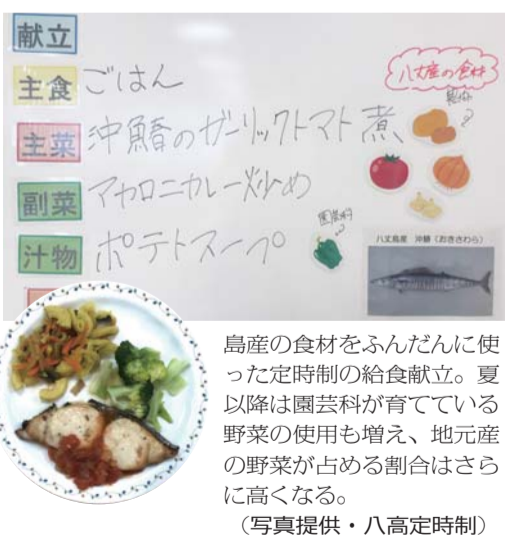 献立
主食 ごはん
八丈産の食材
主菜 沖鰆のガーリックトマト煮
副菜 マカロニカレー炒め
園芸科
汁物 ポテトスープ
八丈島産 沖鰆（おきさわら）
島産の食材をふんだんに使
った定時制の給食献立。夏
以降は園芸科が育てている
野菜の使用も増え、地元産
の野菜が占める割合はさら
に高くなる。
（写真提供・八高定時制）